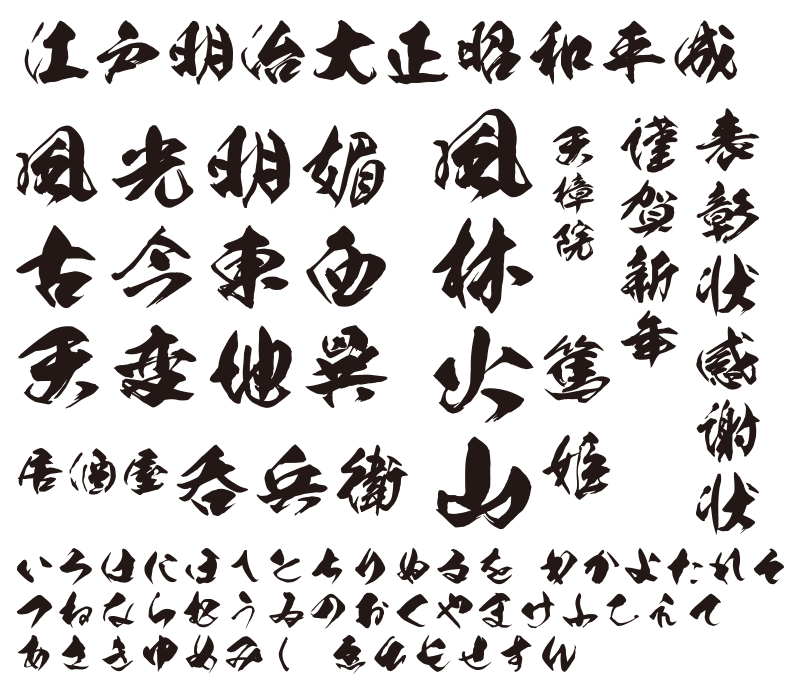 江戸明治大正昭和平成
風光明媚
古今東西
天変地異
居酒屋呑兵衛
表彰状感謝状
謹賀新年
天樟院
篤姫
風林火山
いろはにほへとちりぬるを わかよたれそ
つねならむうゐのおくやまけふこえて
あさきゆめみし ゑひもせすん